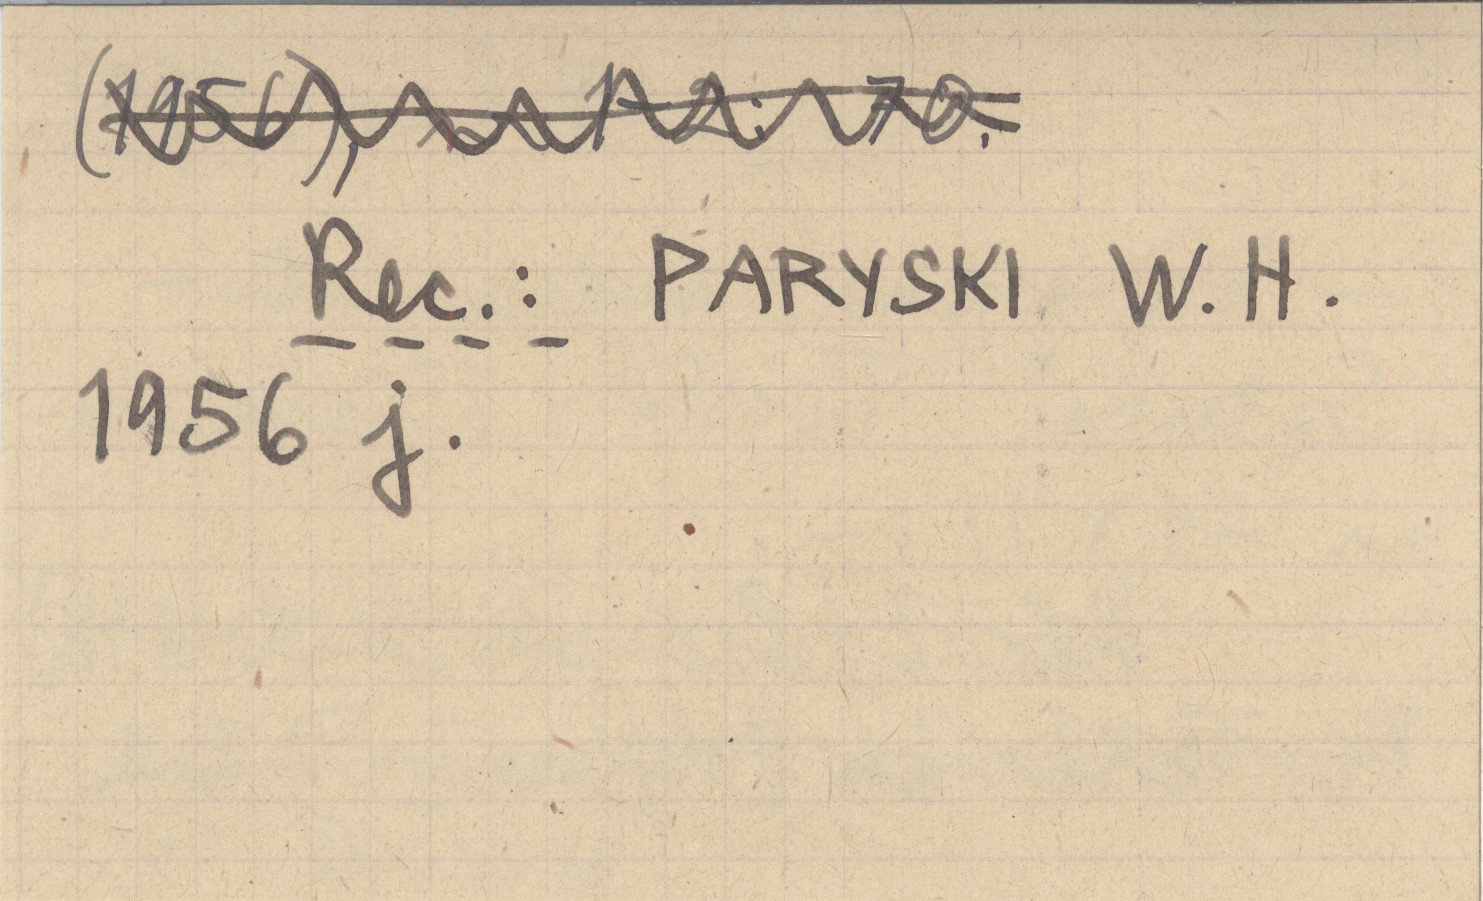 (1956), 1-2: 70.
Rec.: PARYSKI W.H.
1956 j.